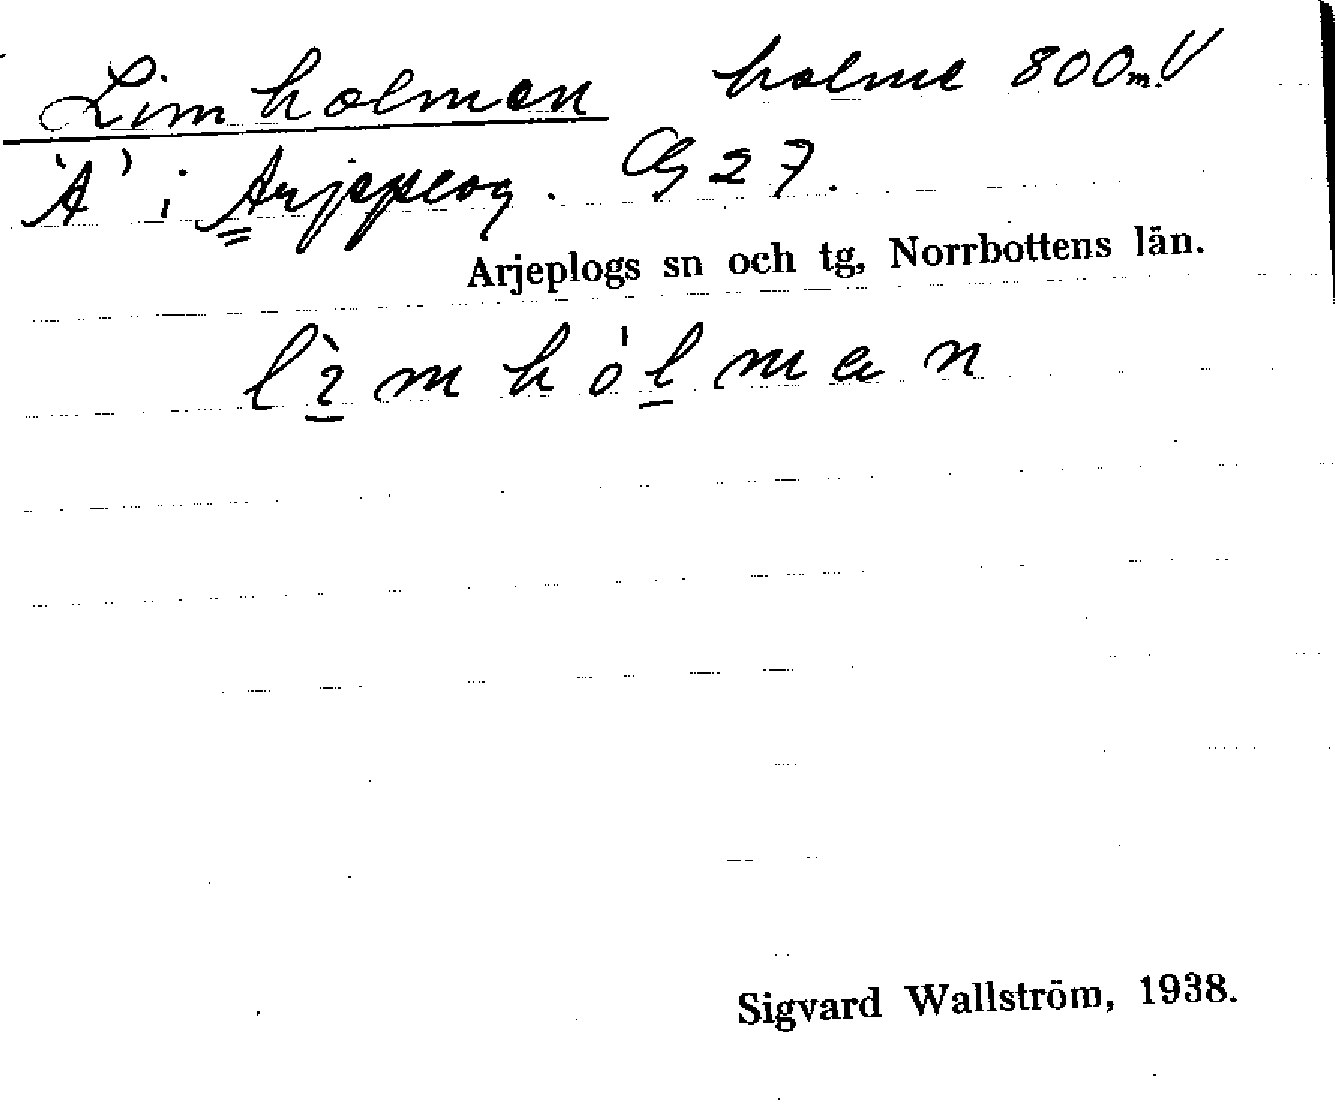 Limholmen holme 800 m V
'A' i Arjeplog. G 27.
Arjeplogs sn och tg, Norrbottens län.
lìmhól̠man
Sigvard Wallström, 1938.